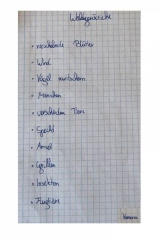 Waldgeräusche
• raschelnde Blätter
• Wind
• Vögel zwitschern
• Menschen
• verschiedene Tiere
• Specht
• Amsel
• Grillen
• Insekten
• Flugtiere